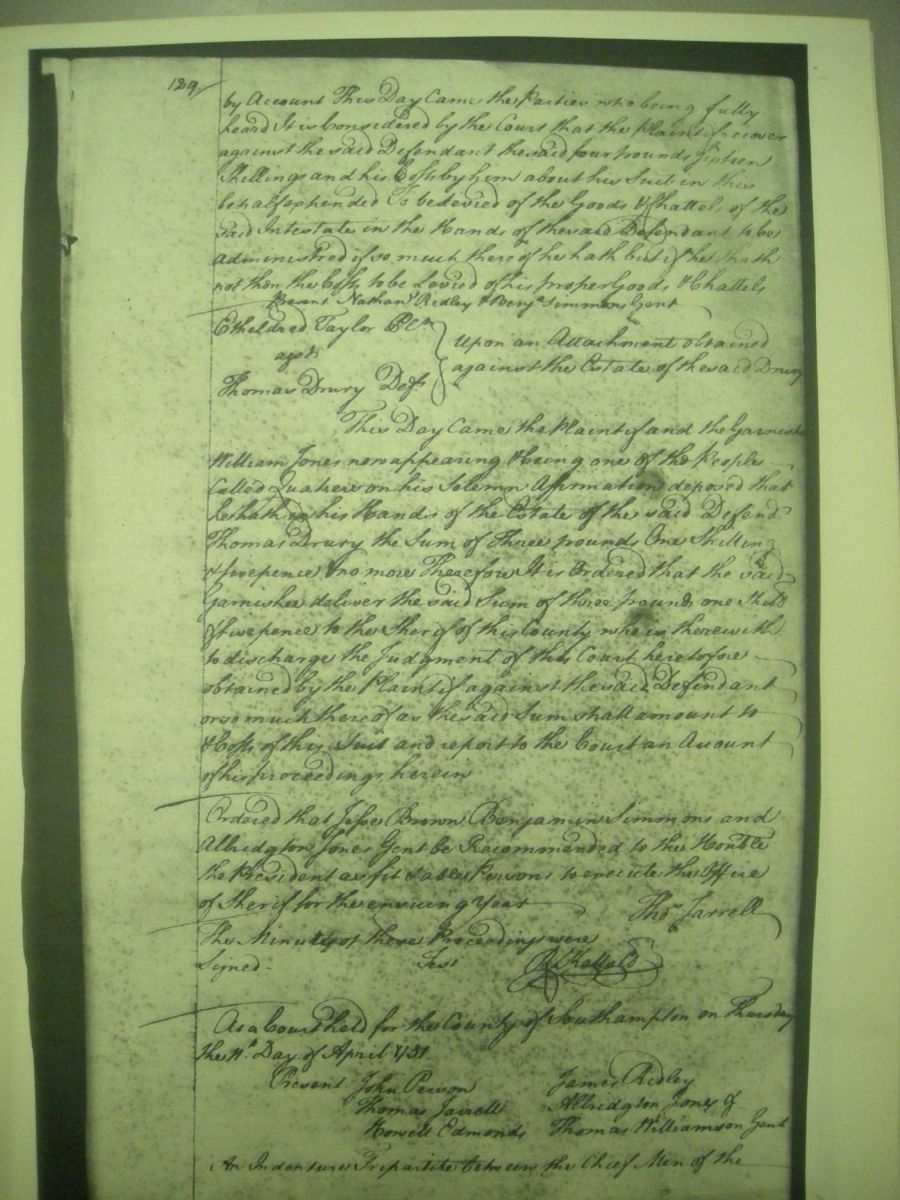 189/
by Account This Day Came the Parties who being fully
heard It is Considered by the Court that the Plaintif recover
against the said Defendant the said four pounds fifteen
Shillings and his Costs by him about his Suit in this
behalf expended To be levied of the Goods & Chattels of the
said Intestate in the Hands of the said Defendant to be
Administred if so much thereof he hath but if he hath
not then the Costs to be Levied of his proper Goods & Chattels
Present Nathan Ridley & Benja Simmons Gent
Etheldred Taylor Plt
agst
Thomas Drury Deft
Upon an Attachment obtained
against the Estate of the said Drury
This Day Came the Plaintif and the Garnishee
William Jones now appearing & being one of the People
Called Quakers on his Solemn Affirmation deposed that
he hath in his Hands of the Estate of the said Defend
Thomas Drury the Sum of Three pounds One Shilling
& fivepence & no more Therefore It is Ordered that the said
Garnishee deliver the said Sum of three pounds one Shill
& fivepence to the Sherif of this County who is therewith
to discharge the Judgment of this Court heretofore
obtained by the Plaintif against the said Defendant
or so much thereof as the said Sum shall amount to
& Costs of this Suit and report to the Court an Account
of his proceedings herein
Ordered that Jesse Brown Benjamin Simmons and
Allridgton Jones Gent be Recommended to the Honble
the President as fit & able Persons to execute the Office
of Sherif for the ensuing Year
Thos Jarrell
The Minutes of these Proceedings were
Signed
Test
At a Court held for the County of Southampton on Thursday
the 11th Day of April 1751
Present John Person
James Ridley
Thomas Jarrell
Allridgton Jones &
Howell Edmonds
Thomas Williamson Gent
An Indenture Tripartite between the Chief Men of the